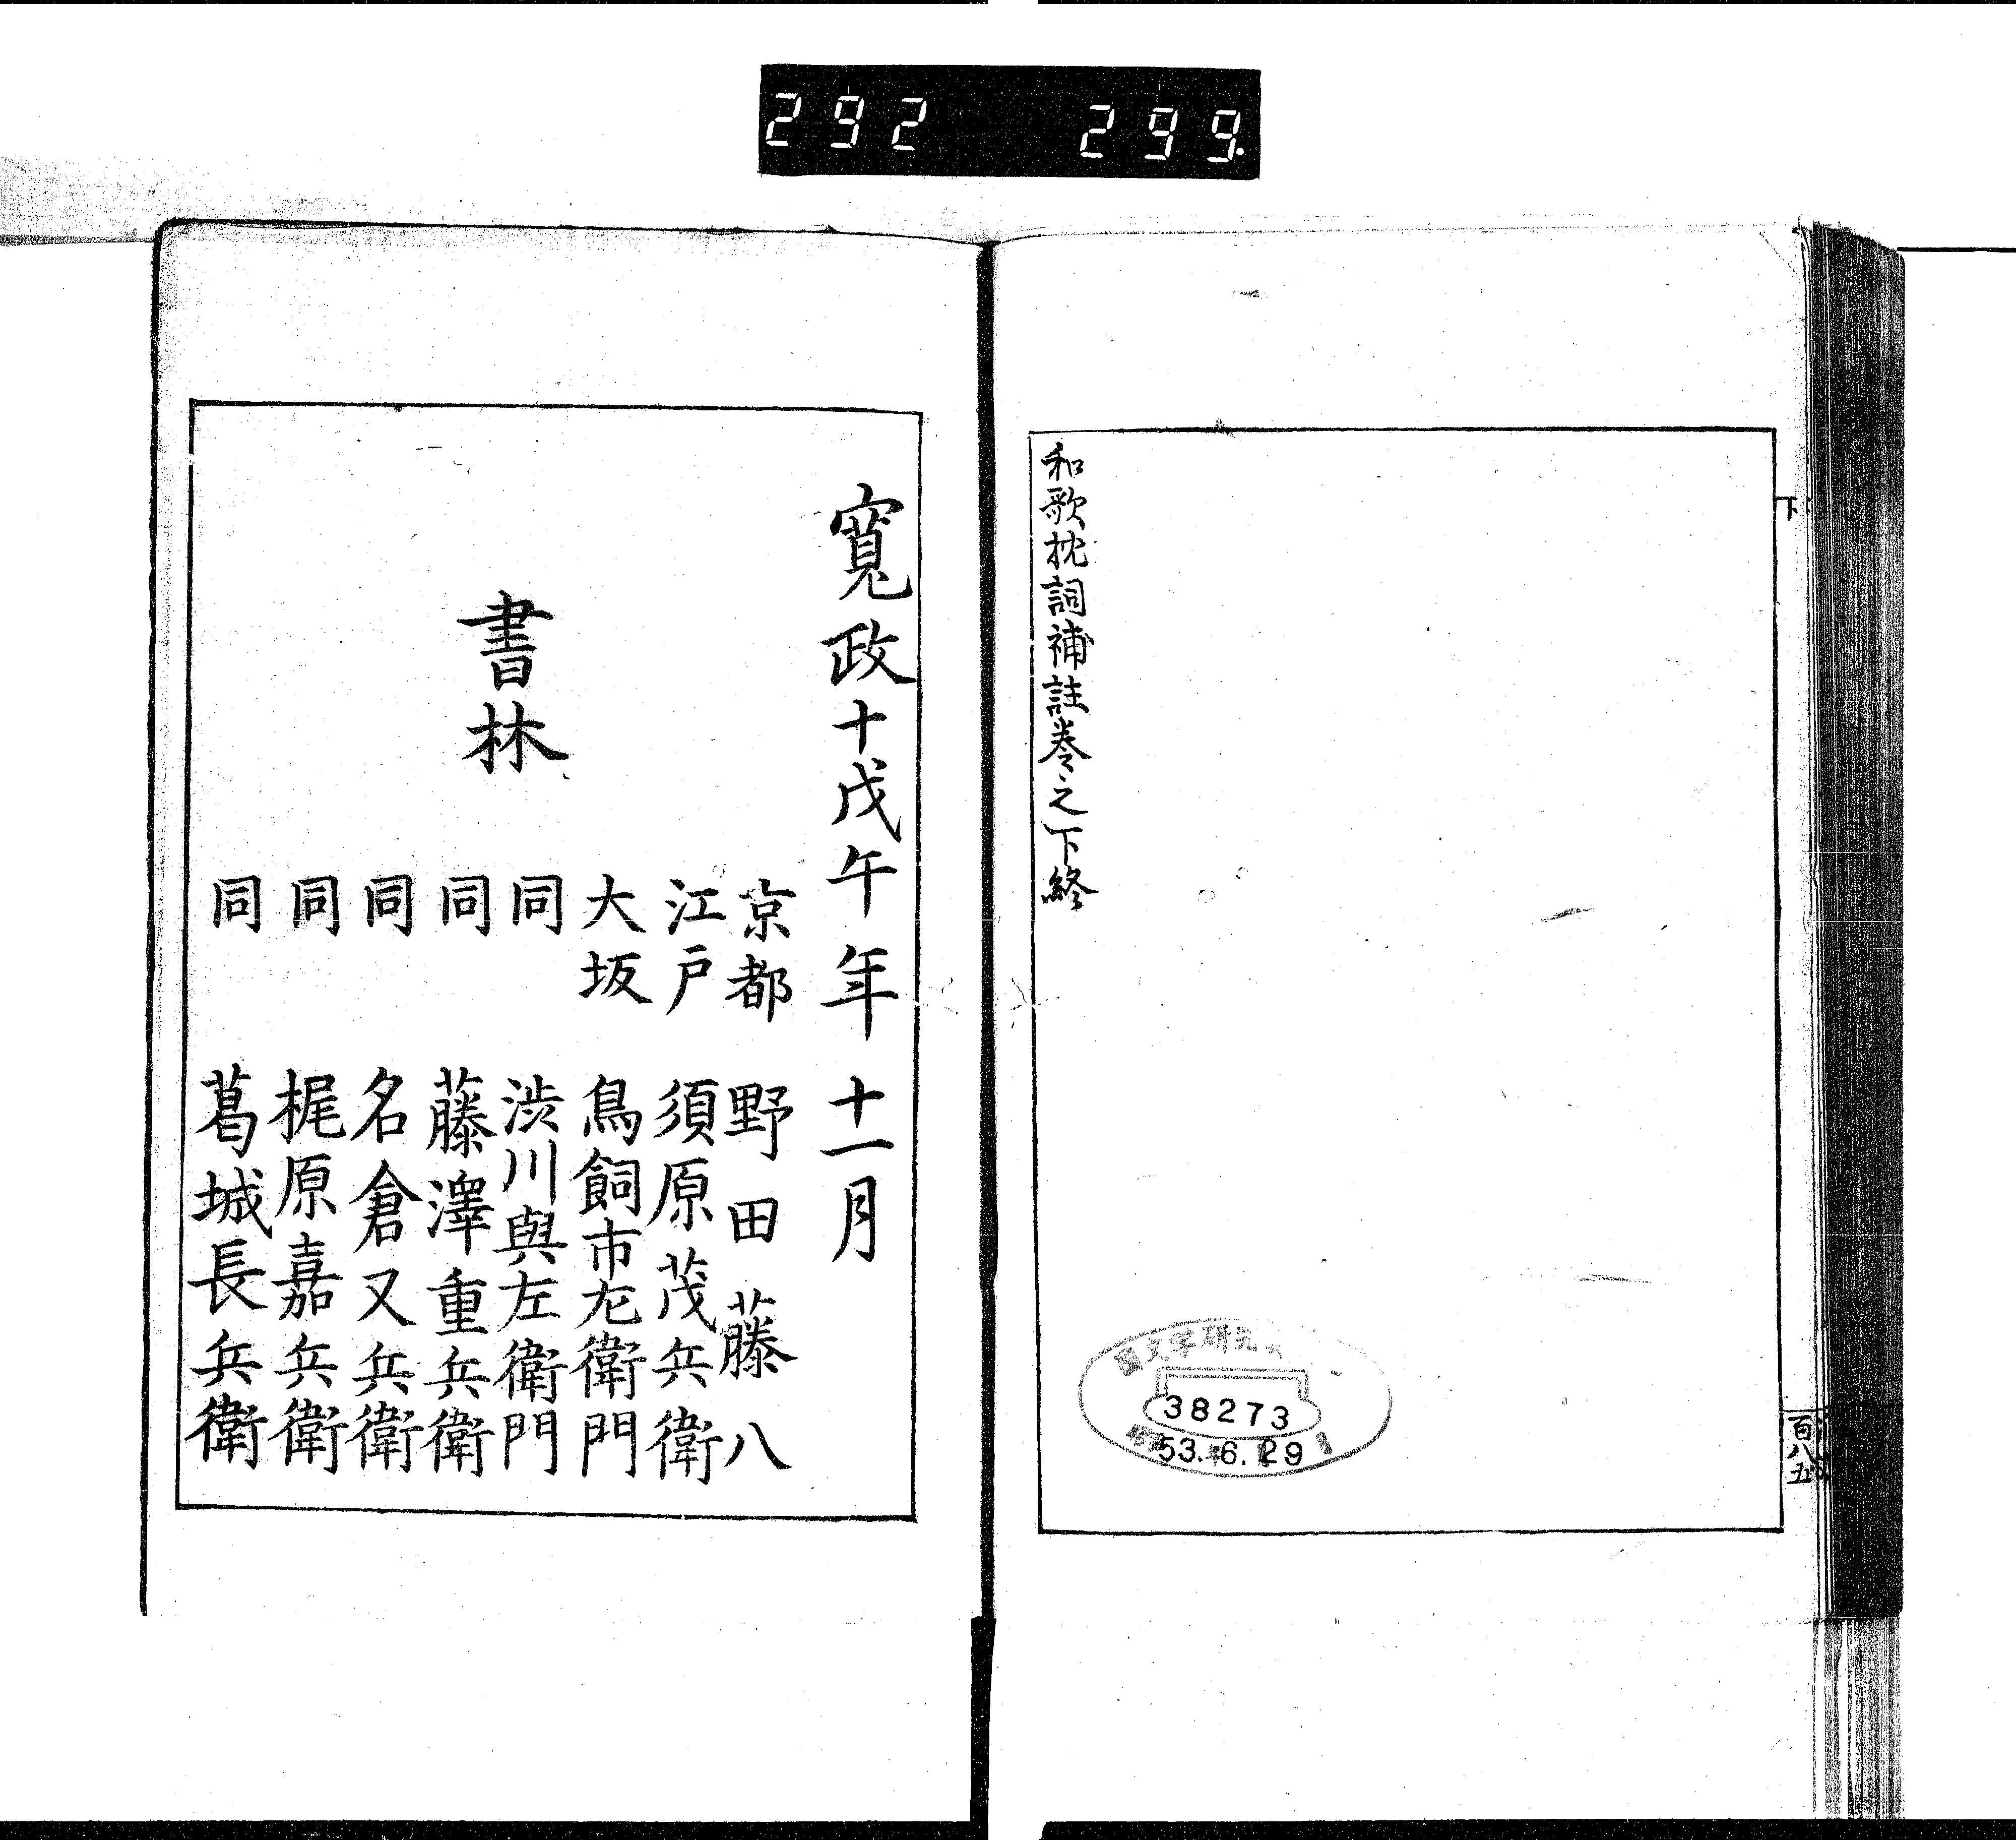 292 299
下
百八五
和歌枕詞補註巻之下終
國文学研究
38273
53.6.29
寛政十戊午年十一月
京都 野田藤八
江戸 須原茂兵衛
大坂 鳥飼市左衛門
書林
同 渋川與左衛門
同 藤澤重兵衛
同 名倉又兵衛
同 梶原嘉兵衛
同 葛城長兵衛